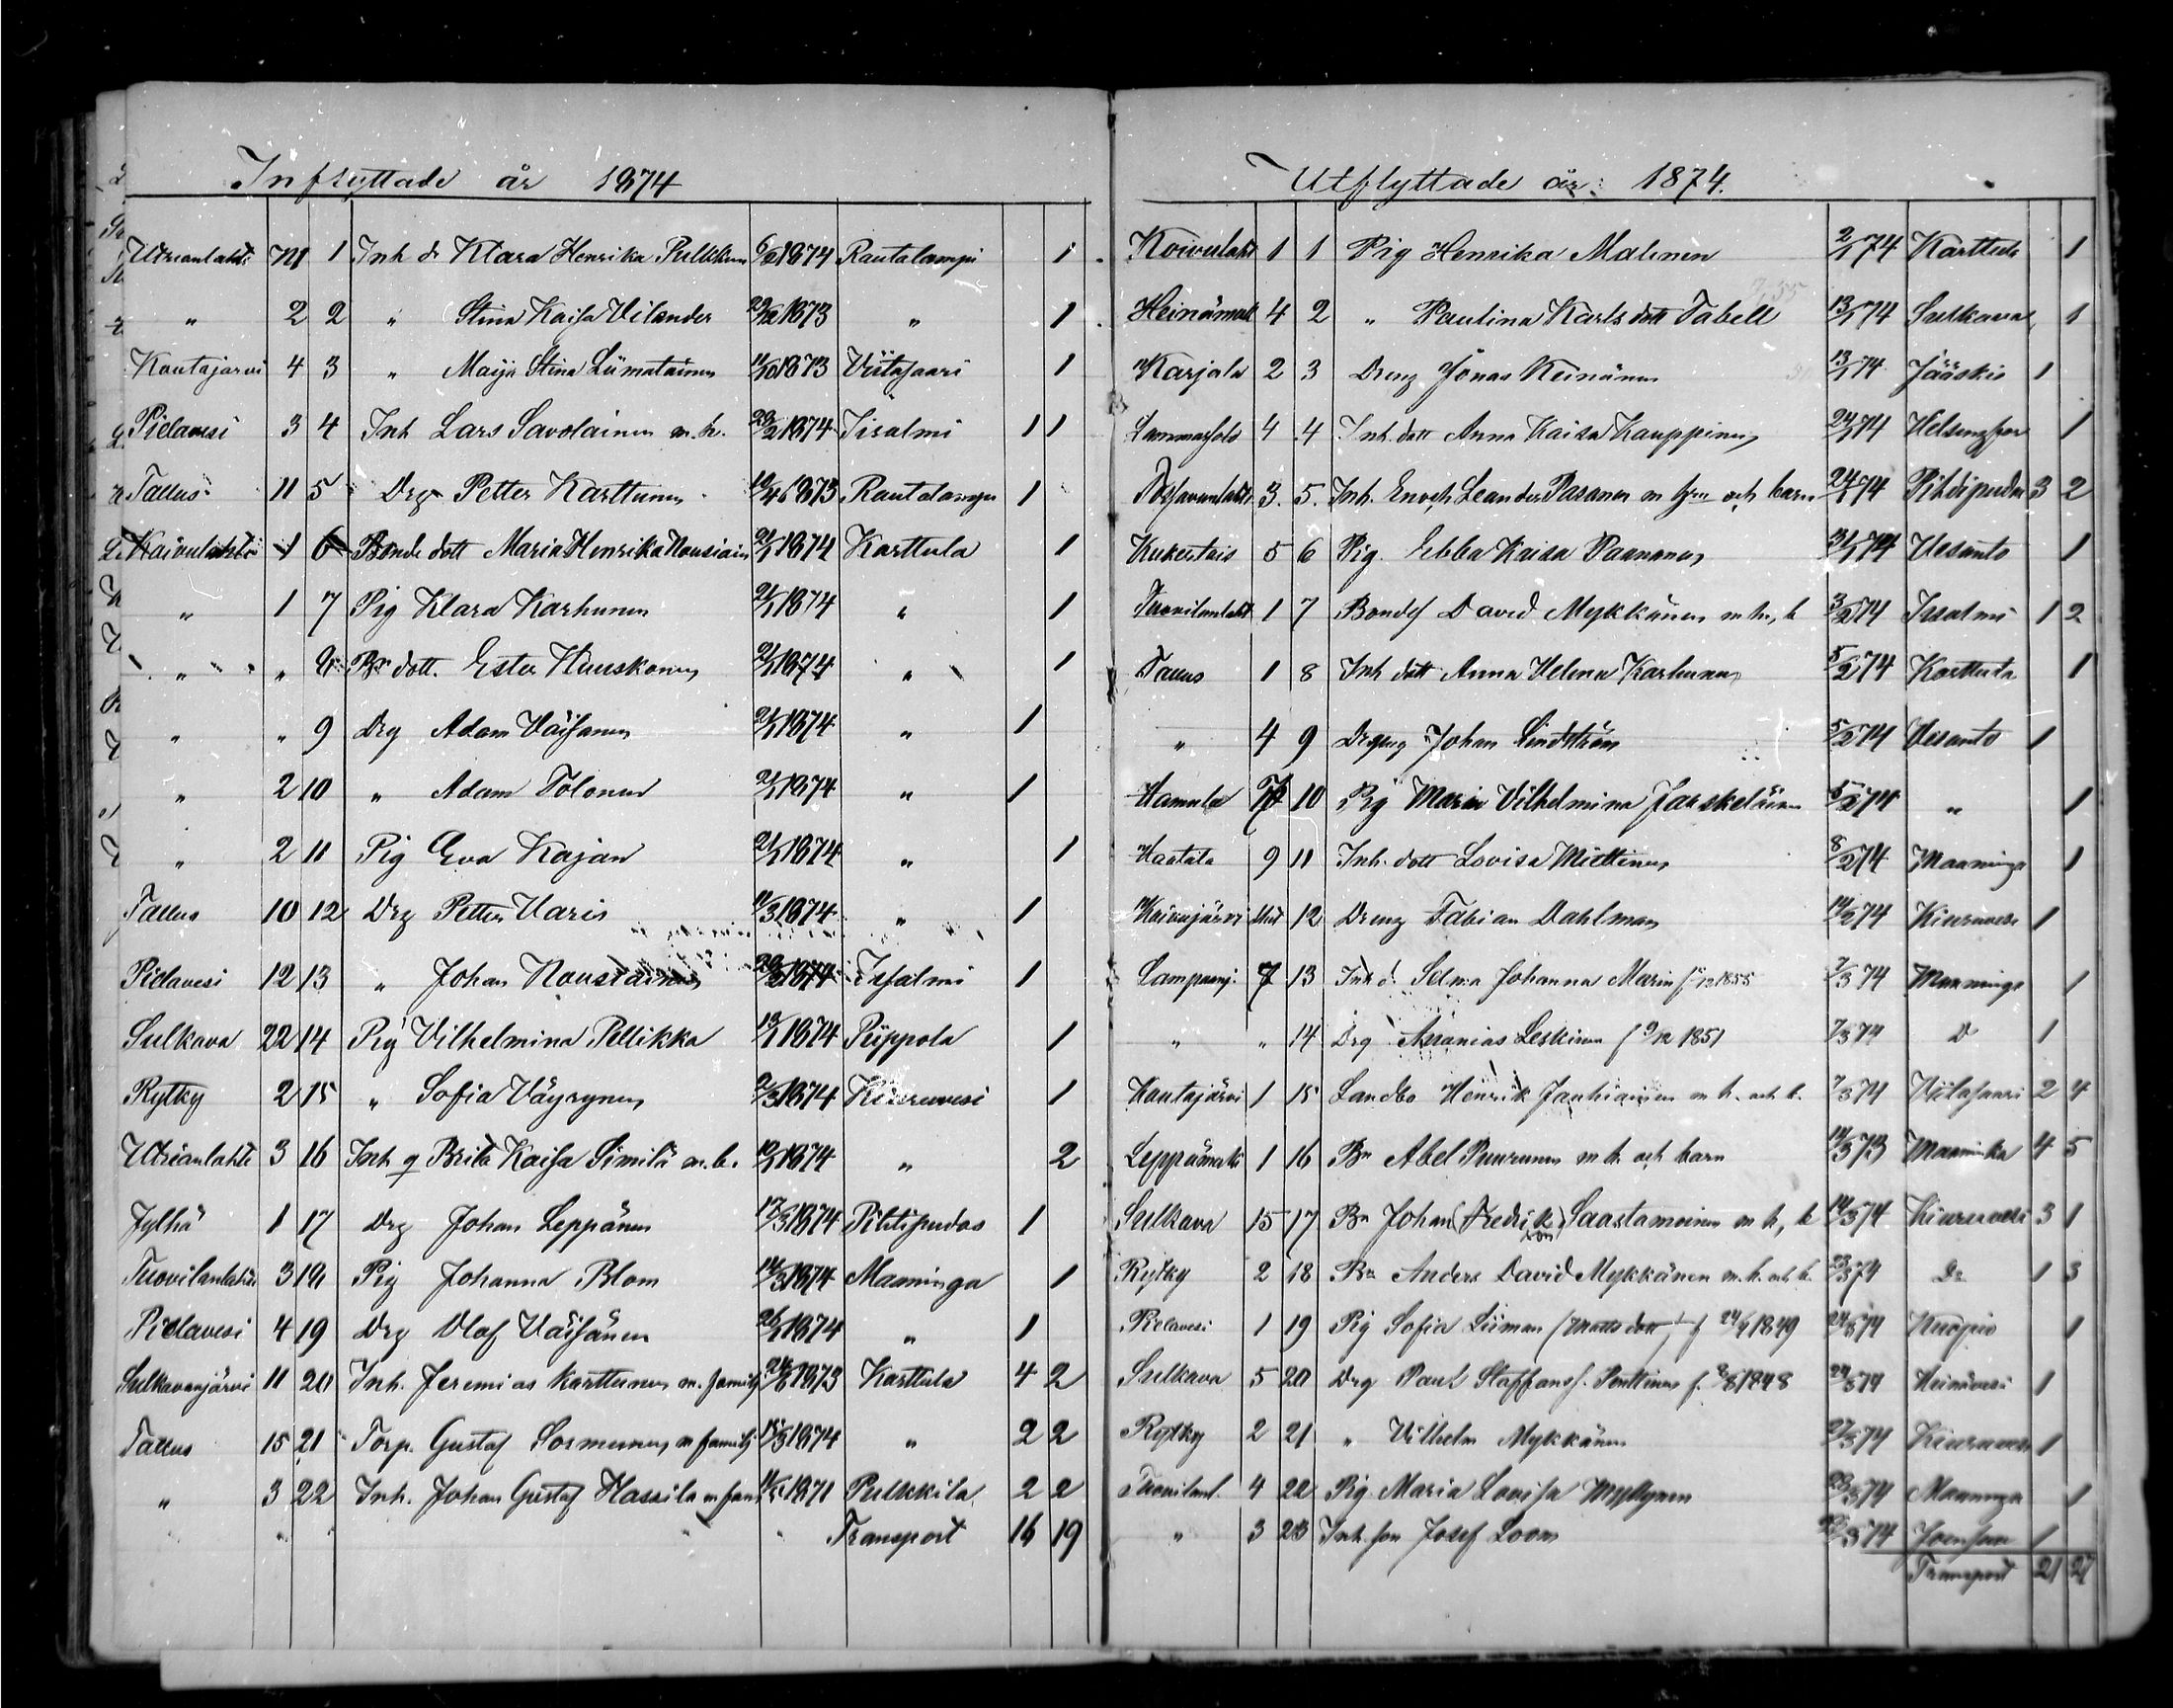 Inflyttade år 1874
Utrianlahti 1 Inh dr Klara Henrika Pulkkinen 1874 Rautalampi 1
" 2 2 " Stina Kaisa Vilander 1873 " 1
Koutajärvi 4 3 " Maija Stina Liimatainen 1873 Viitasaari 1
Pielavesi 3 4 Inh Lars Savolainen m. h. 1874 Iisalmi 1 1
Tallus 11 5 Drg Petter Karttunen 1873 Rautalampi 1
Koivulahti 1 6 Bonde dott Maria Henrika Nousiain 21/1 1874 Karttula 1
" 1 7 Pig Klara Karhunen 21/1 1874 " 1
" " 8 Bn dott. Ester Huuskonen 21/1 1874 " 1
" " 9 Drg Adam Väisänen 21/1 1874 " 1
" 2 10 " Adam Tolonen 21/1 1874 " 1
" 2 11 Pig Eva Kajan 21/1 1874 " 1
Tallus 10 12 Drg Petter Varis 1874 " 1
Pielavesi 12 13 " Johan Nousiainen 1874 Iisalmi 1
Sulkava 22 14 Pig Vilhelmina Pellikka 1874 Piippola 1
Rytky 2 15 " Sofia Väyrynen 2/3 1874 Kiuruvesi 1
Utrianlahti 3 16 Inh q Brita Kaisa Similä m. b. 1874 " 2
Jylhä 1 17 Drg Johan Leppänen 17/3 1874 Pihtipudas 1
Tuovilanlahti 3 18 Pig Johanna Blom 14/3 1874 Maaninga 1
Pielavesi 4 19 Drg Olof Väisänen 1874 " 1
Sulkavanjärvi 11 20 Inh. Jeremias Karttunen m. familj 1873 Karttula 4 2
Tallus 15 21 Torp. Gustaf Sormunen m familj 1874 " 2 2
" 3 22 Inh. Johan Gustaf Hassila m fam 1871 Pulkkila 2 2
Transport 16 19
Utflyttade år: 1874.
Koivulaht 1 1 Pig Henrika Malinen 2/1 74 Karttula 1
Heinämäk 4 2 " Paulina Karlsdott Tabell 13/1 74 Sulkava 1
Karjala 2 3 Dreng Jonas Keinänen 13/1 74 Jääskis 1
Lammassalo 4 4 Inh. dott Anna Kaisa Kauppinen 24/1 74 Helsingfor 1
3. 5. Inh. Enoch Leander Pasanen m hru och barn 24/1 74 Pihtipudas 3 2
5 6 Pig. Ebba Kaisa Paananen 31/1 74 Vesanto 1
Tuovilanlaht 1 7 Bondes David Mykkänen m h, b 3/2 74 Iisalmi 1 2
Tallus 1 8 Inh dott Anna Helena Karhunen 5/2 74 Karttula 1
" 4 9 Dreng Johan Lindström 5/2 74 Vesanto 1
Hamula 10 Pig Maria Vilhelmina Jääskeläinen 5/2 74 " 1
Haatala 9 11 Inh. dott Lovisa Miettinen 8/2 74 Maaninga 1
Koivujärvi 12 Dreng Fabian Dahlman 14/2 74 Kiuruvesi 1
Lampaanj. 7 13 Inh d. Selma Johanna Marin 1855 7/3 74 Maaninga 1
" " 14 Drg Ananias Leskinen f 9/12 1851 7/3 74 D 1
Koutajärvi 1 15 Landbo Henrik Jauhiainen m h. och b. 7/3 74 Viitasaari 2 4
Leppämäki 1 16 Bn Abel Puurunen m h. och barn 14/3 73 Maaninka 4 5
Sulkava 15 17 Bn Johan (Fredrikson) Saastamoinen m h, b 14/3 74 Kiuruvesi 3 1
Rytky 2 18 Bn Anders David Mykkänen m. h. och b. 23/3 74 Do 1 3
Pielavesi 1 19 Pig Sofia Liiman (Matts dott) f 1849 24/3 74 Kuopio 1
Sulkava 5 20 Drg Paul Staffans. Penttinen f. 1848 24/3 74 Heinävesi 1
Rytky 2 21 " Vilhelm Mykkänen 27/3 74 Kiuruvesi 1
Tuovilanl. 4 22 Pig Maria Lovisa Myllynen 28/3 74 Maaninga 1
" 3 23 Inh. son Josef Loom 74 Joensuu 1
Transport 21 27